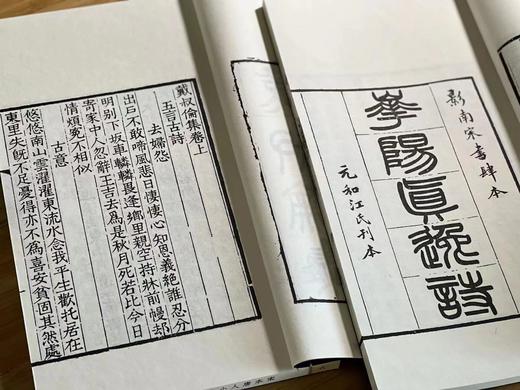 影南宋書肆本
華陽眞逸詩
元和江氏刊本
戴叔倫集卷上
五言古詩
去婦怨
出戶不敢啼風悲日悽悽心知恩義絕誰忍分
明別下坂車轔轔畏逢鄉里親空持牀前幔却
寄家中人忽辭王吉去為是秋月死若比今日
情煩冤不相似
古意
悠悠南山雲濯濯東流水念我平生歡托居在
東里失既不足憂得亦不為喜安貧固其然處
宋本唐人小